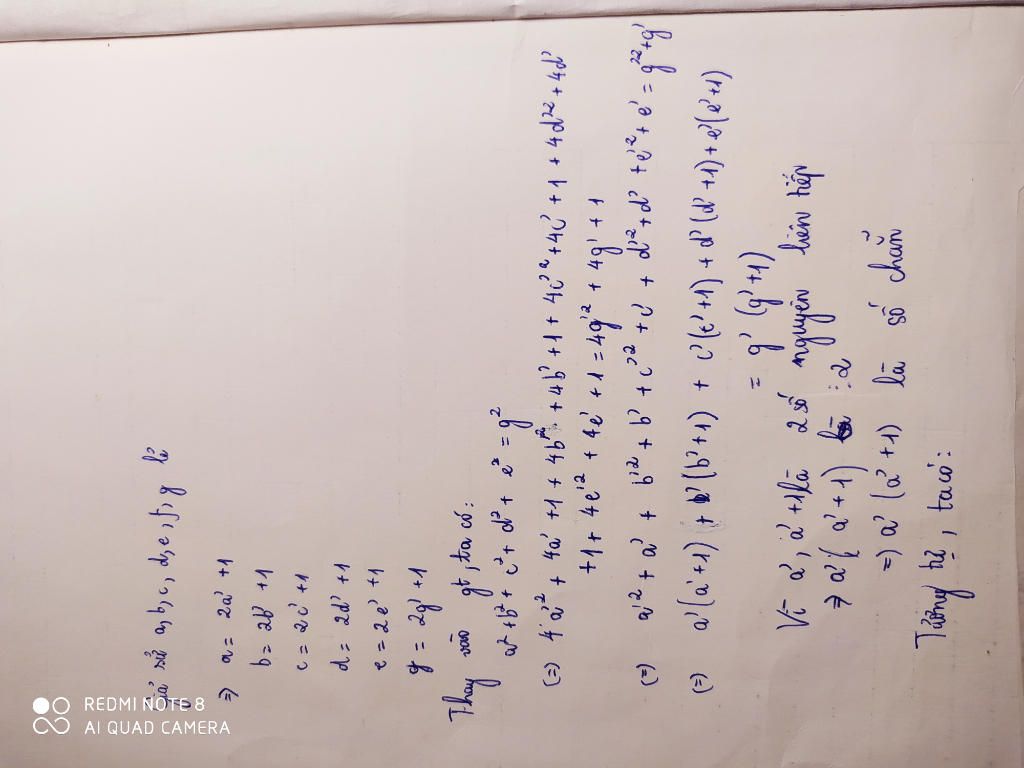 Giả sử a, b, c, d, e, f, g lẻ
=) a = 2a' + 1
b = 2b' + 1
c = 2c' + 1
d = 2d' + 1
e = 2e' + 1
g = 2g' + 1
Thay vào gt, ta có:
a² + b² + c² + d² + e² = g²
(=) 4a'² + 4a' + 1 + 4b'² + 4b' + 1 + 4c'² + 4c' + 1 + 4d'² + 4d'
+ 1 + 4e'² + 4e' + 1 = 4g'² + 4g' + 1
(=) a'² + a' + b'² + b' + c'² + c' + d'² + d' + e'² + e' = g'² + g'
(=) a'(a'+1) + b'(b'+1) + c'(c'+1) + d'(d'+1) + e'(e'+1)
= g'(g'+1)
Vì a', a'+1 là 2 số nguyên liên tiếp
=> a'(a'+1) ⋮ 2
=) a'(a'+1) là số chẵn
Tương tự, ta có:
REDMI NOTE 8
AI QUAD CAMERA